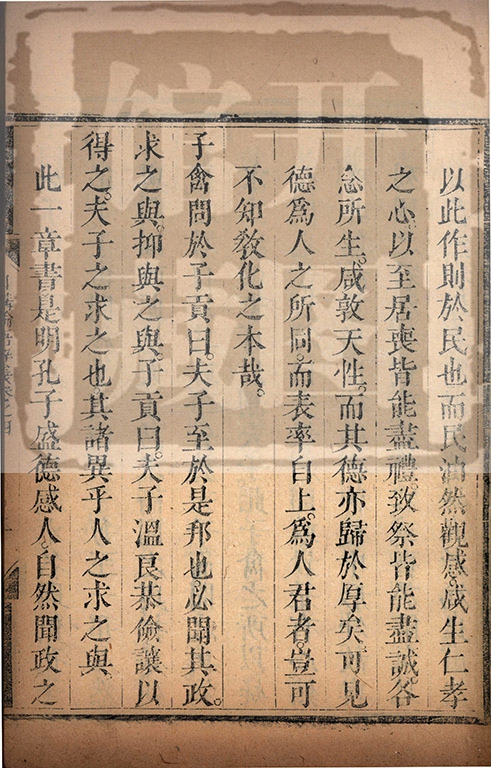 以此作則於民也而民油然觀感。咸生仁孝
之心。以至居喪皆能盡禮。致祭皆能盡誠。各
念所生。咸敦天性。而其德亦歸於厚矣。可見
德爲人之所同。而表率自上。爲人君者。豈可
不知教化之本哉。
子禽問於子貢曰。夫子至於是邦也。必聞其政。
求之與。抑與之與。子貢曰。夫子溫良恭儉讓以
得之。夫子之求之也。其諸異乎人之求之與
此一章書是明孔子盛德感人。自然聞政之